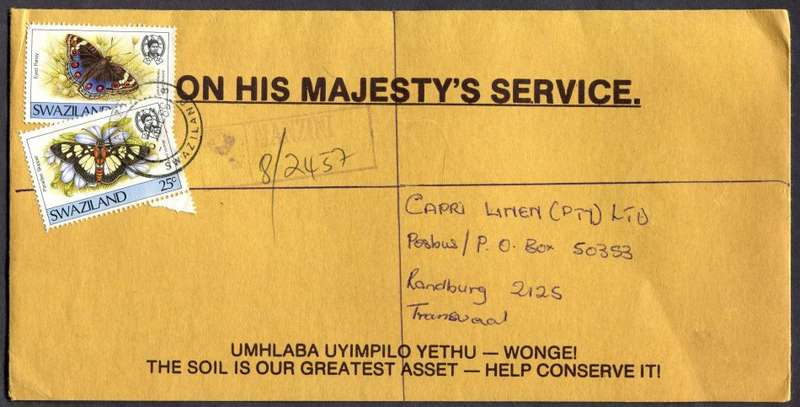 Eyed Pansy
SWAZILAND
ON HIS MAJESTY'S SERVICE.
SWAZILAND
25c
8/2457
CAPRI LINEN (PTY) LTD
Posbus/P.O. Box 50353
Randburg 2125
Transvaal
UMHLABA UYIMPILO YETHU — WONGE!
THE SOIL IS OUR GREATEST ASSET — HELP CONSERVE IT!